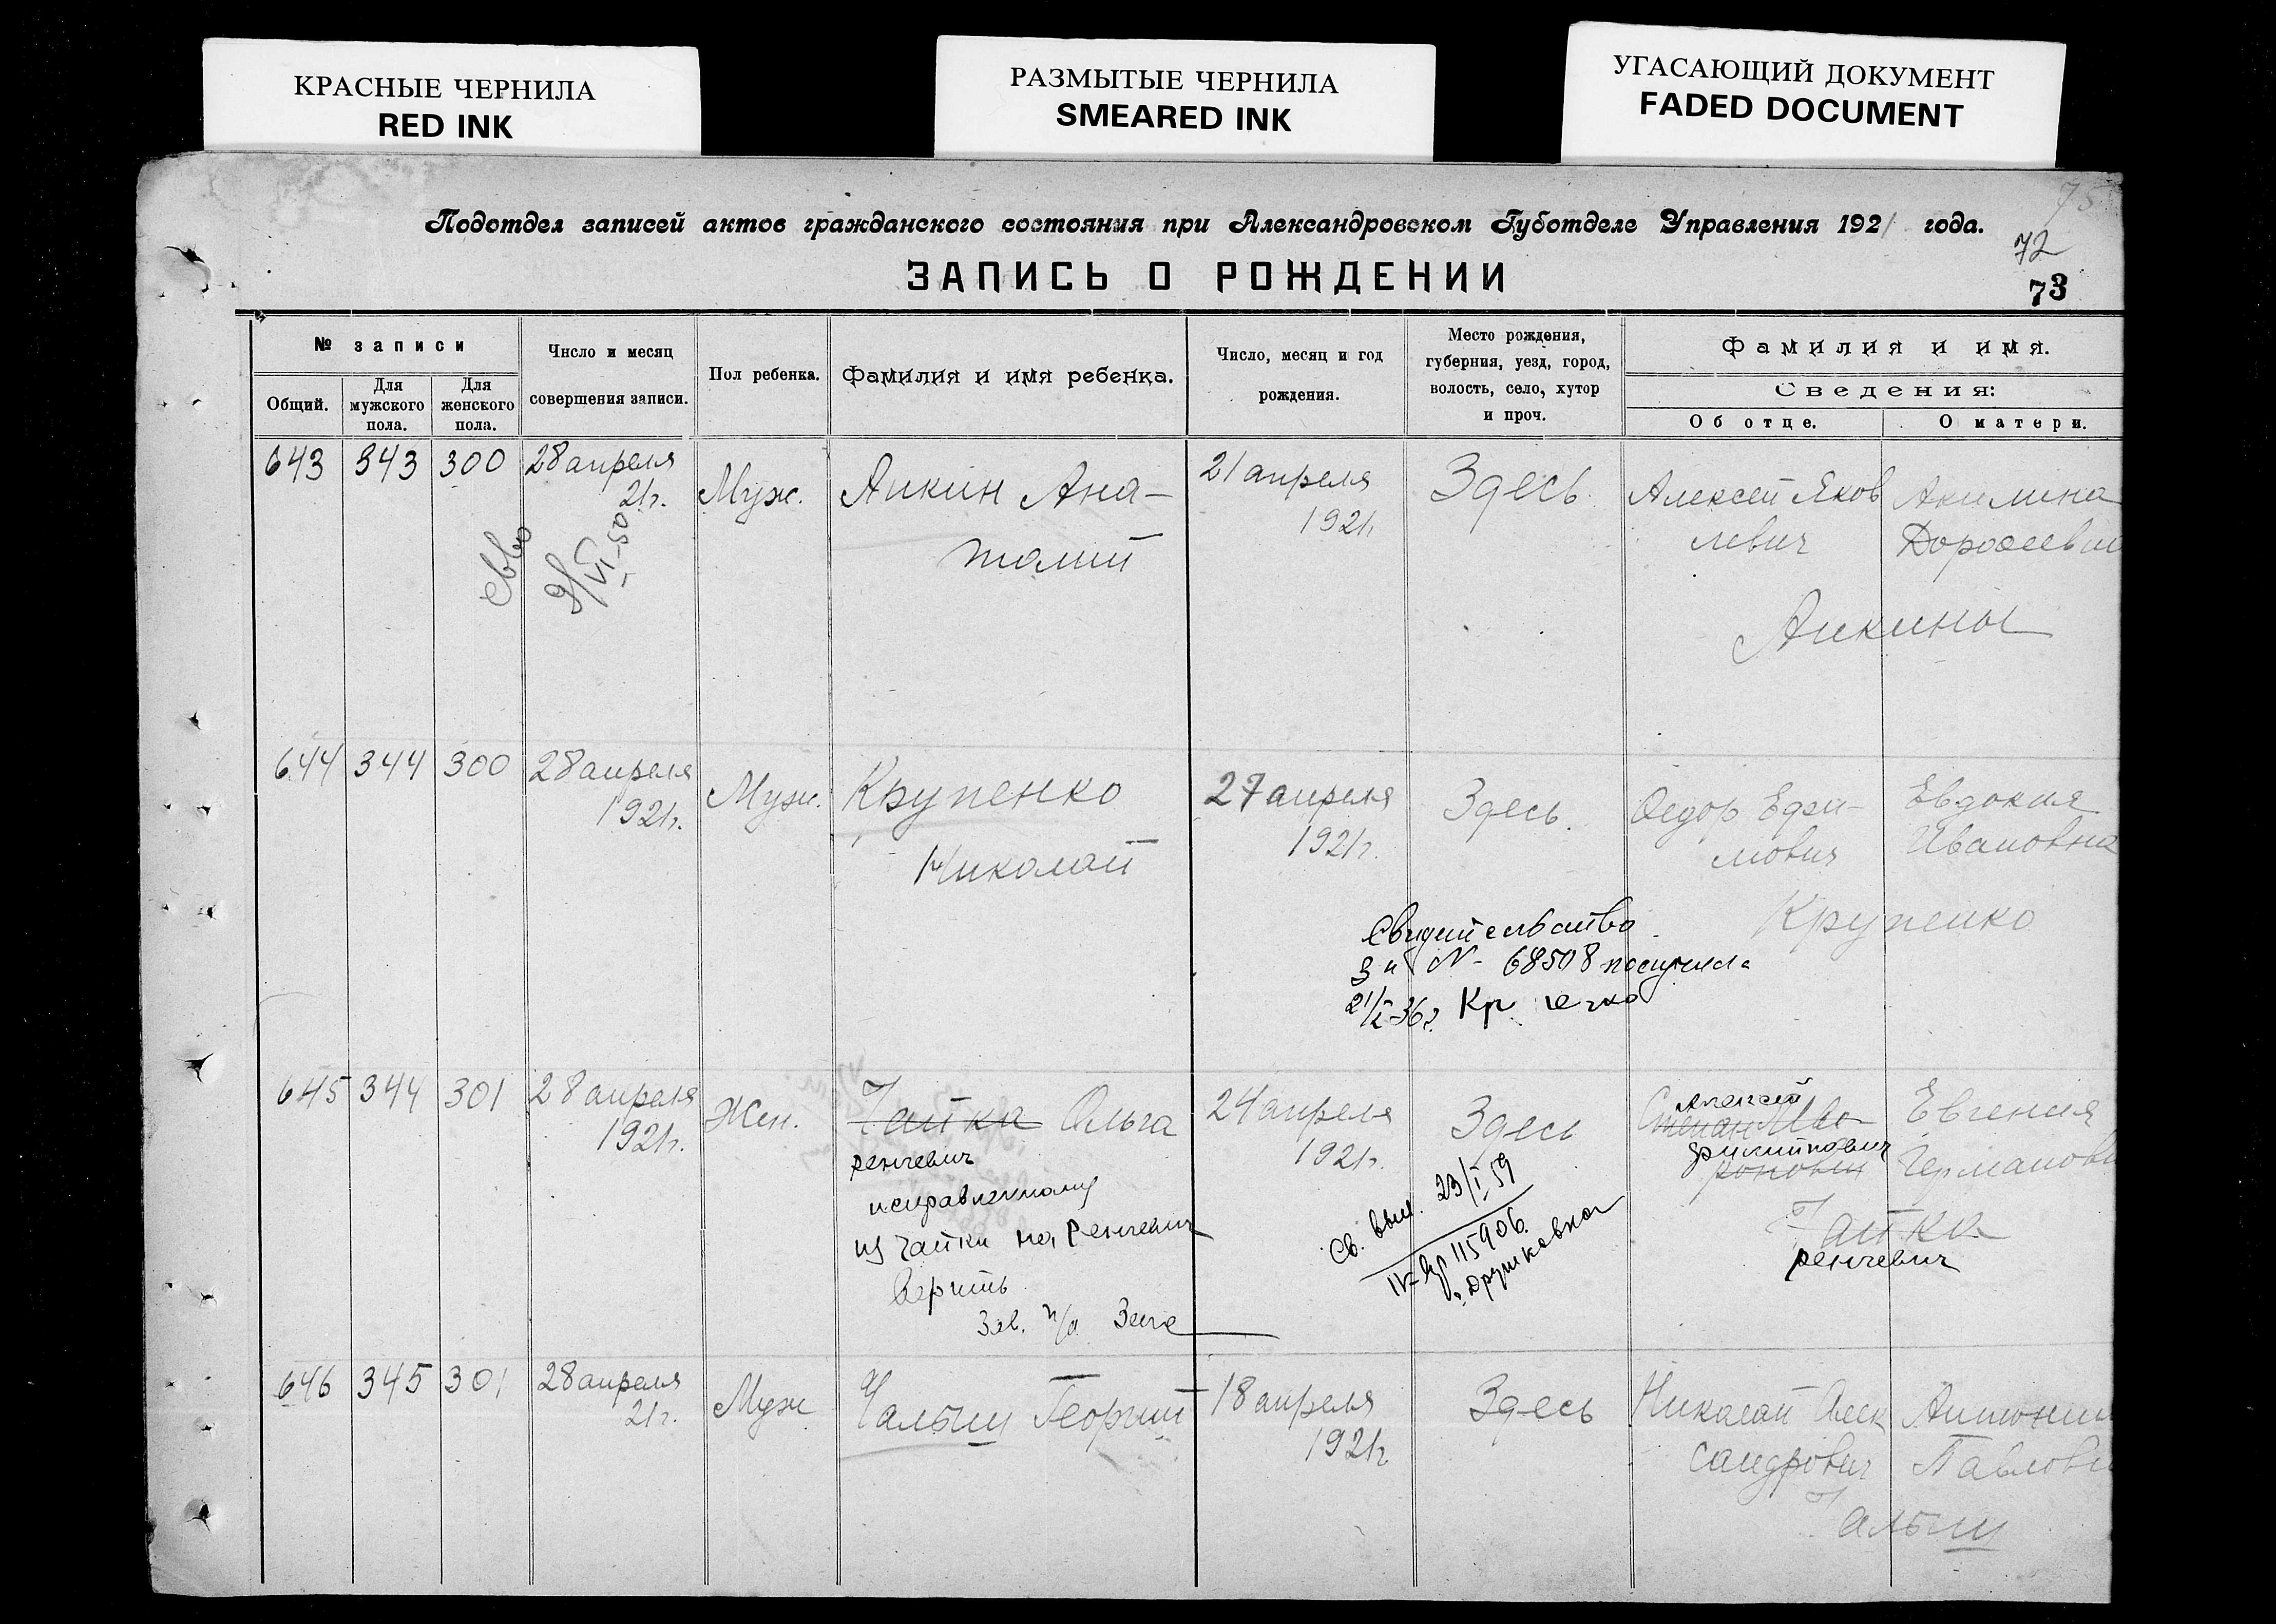 КРАСНЫЕ ЧЕРНИЛА
RED INK
РАЗМЫТЫЕ ЧЕРНИЛА
SMEARED INK
УГАСАЮЩИЙ ДОКУМЕНТ
FADED DOCUMENT
75
Подотдел записей актов гражданского состояния при Александровском Губотделе Управления 1921 года.
72
ЗАПИСЬ О РОЖДЕНИИ
73
№ записи
Общий.
Для мужского пола.
Для женского пола.
Число и месяц
совершения записи.
Пол ребенка.
Фамилия и имя ребенка.
Число, месяц и год
рождения.
Место рождения,
губерния, уезд, город,
волость, село, хутор
и проч.
Фамилия и имя.
Сведения:
Об отце.
О матери.
643 343 300 28 апреля
21г.
Муж.
Аикин Ана-
толий
21 апреля
1921г.
Здесь
Алексей Яков
левич
Акилина
Аикины
9/VI-50
644 344 300 28 апреля
1921г.
Муж.
Крупенко
Николай
27 апреля
1921г.
Здесь.
Федор Ефи-
мович
Евдокия
Ивановна
Крупенко
Свидетельство
N- 68508 получила
21/I-36г.
645 344 301 28 апреля
1921г.
Жен.
Чайка Ольга
ренчевич
исправленному
из Чайки на Ренчевич
Верить
Зав.
24 апреля
1921г.
Здесь
Св. выд. 23/I 59
115906
Алексей
Степан
Филиппович
Евгения
Германовн
Чайка
ренчевич
646 345 301 28 апреля
21г.
Муж
Чалый Георгий
18 апреля
1921г
Здесь
Николай Алек
сандрович
Антонин
Павловн
Чалый